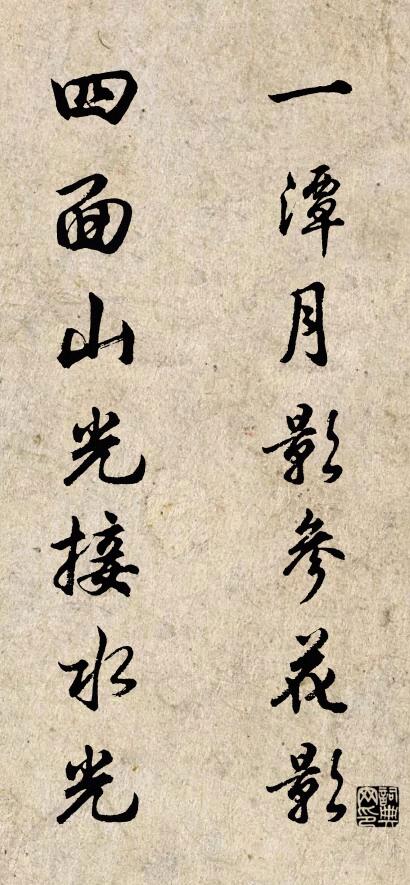 一潭月影參花影
四面山光接水光
詞典
网印